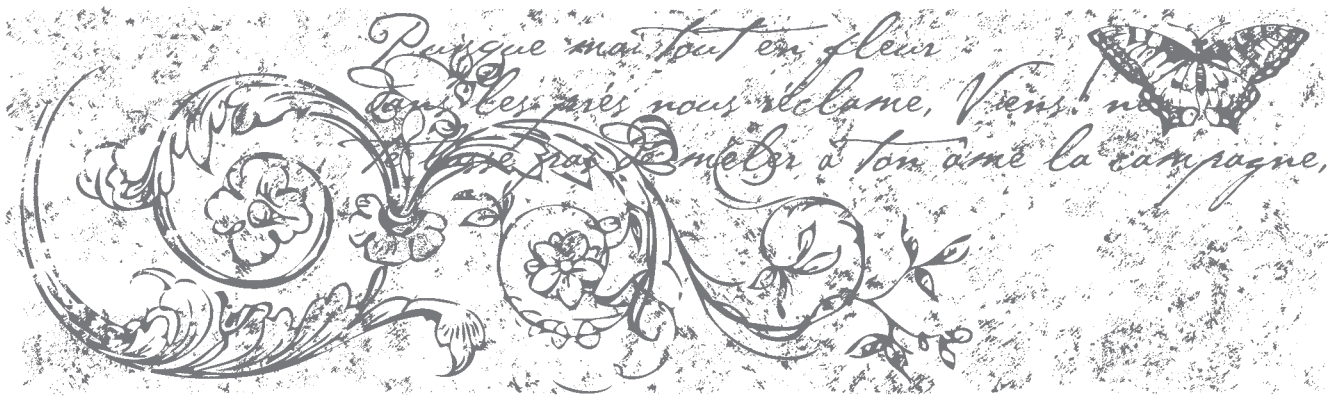 Puisque mai tout en fleur
dans les prés nous réclame, Viens! ne
te lasse pas de mêler à ton âme la campagne,